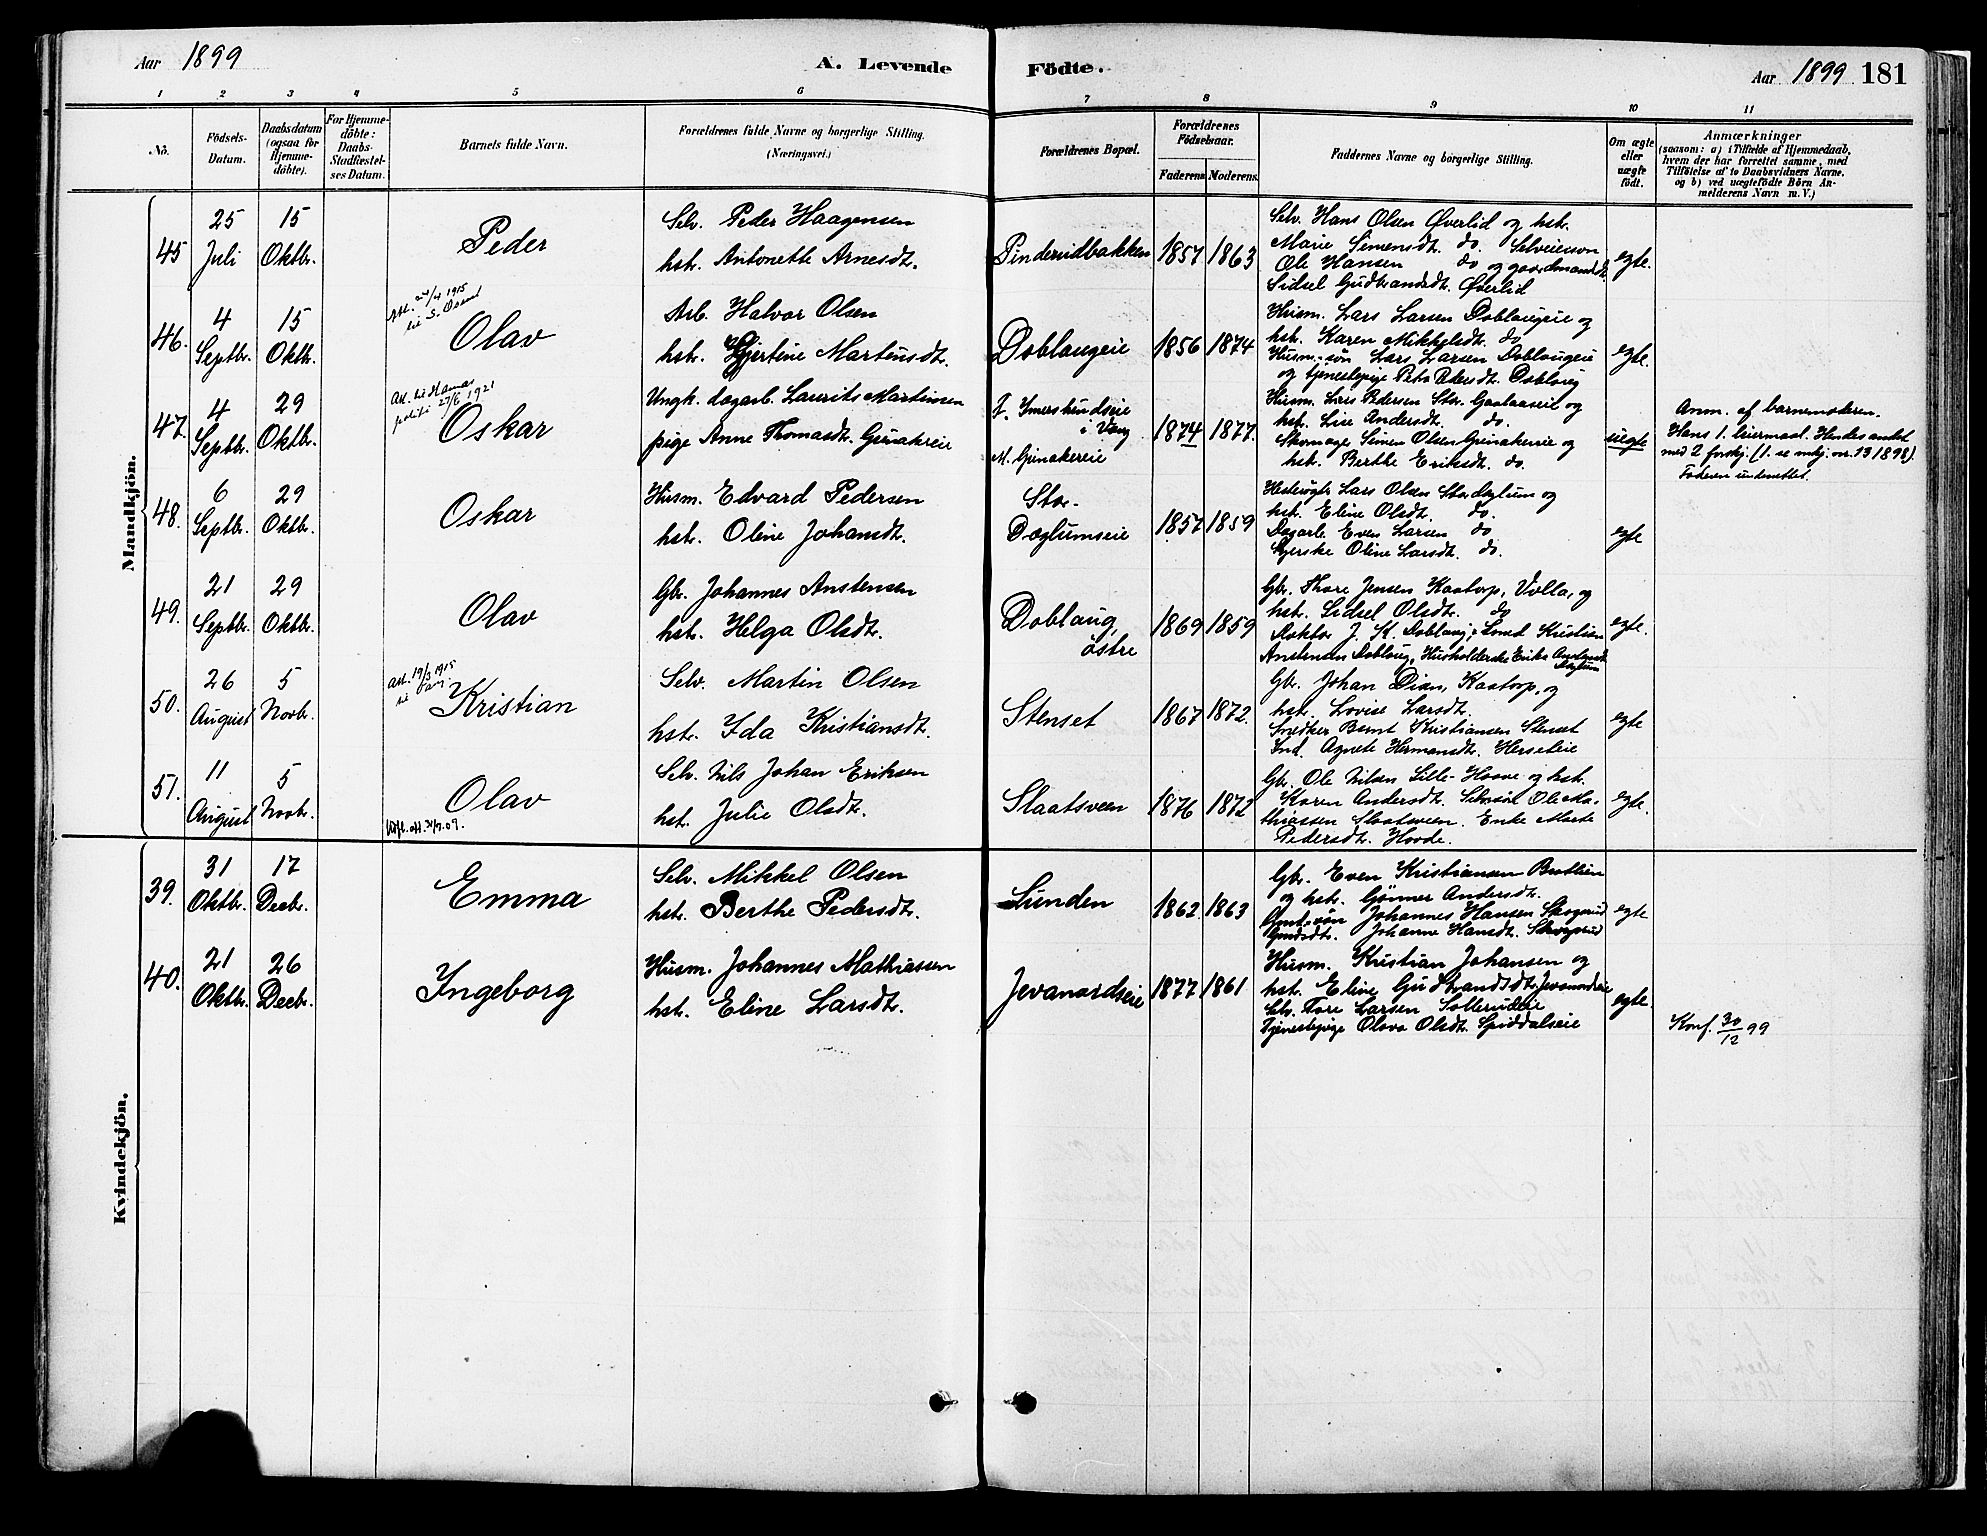 Aar 1899
A. Levende
Födte.
Aar 1899
181
1 2 3 4 5 6 7 8 9 10 11
No.
Födsels-
Datum.
Daabsdatum
(ogsaa for
Hjemme-
döbte).
For Hjemme-
döbte:
Daabs-
Stadfæstel-
ses Datum.
Barnets fulde Navn.
Forældrenes fulde Navne og borgerlige Stilling.
(Næringsvei.)
Forældrenes Bopæl.
Forældrenes
Födselsaar.
Faderens. Moderens.
Faddernes Navne og borgerlige Stilling.
Om ægte
eller
uægte
födt.
Anmærkninger
(saasom: a) i Tilfælde af Hjemmedaab,
hvem der har forrettet samme, med
Tilföielse af to Daabsvidners Navne,
og b) ved uægtefödte Börn An-
melderens Navn m. V.)
Mandkjön.
45
25
Juli
15
Oktbr.
Peder
Selv. Peder Haagensen
hstr. Antonette Arnesdt.
Pinderudbakken
1857
1863
Selv. Hans Olsen Øverlid og hstr.
Marie Simensdt. do. Selveiersøn
Ole Hansen do og gaardmandsdt.
Sidsel Gudbrandsdt. Øverlid
egte.
46.
4
Septbr.
15
Oktbr.
Att. 24/4 1915
Olav
Arb. Halvor Olsen
hstr. Hjertine Martinsdt.
Doblougeie
1856
1874
Husm. Lars Larsen Doblougeie og
hstr. Karen Mikkelsdt. do
Husm.-søn Lars Larsen Doblougeie
og tjenestepige Petra Pedersdt. Dobloug
egte.
47.
4
Septbr.
29
Oktbr.
Att. til Hamar
politi 27/6 1921
Oskar
Ungk. dagarb. Laurits Martinsen
pige Anne Thomasdt. Grinakereie
F. Imerslundseie
i Vang
M. Grinakereie
1874
1877.
Husm. Lars Pedersen Stor. Gaalaaseie og
hstr. Lise Andersdt. do.
Skomager Simen Olsen Grinakereie og
hstr. Berthe Eriksdt. do.
uegte
Anm. af barnemoderen.
Hans 1. leiermaal. Hendes andet
med 2 forskj. (1. se mkj. nr. 13 1898).
Faderen undermattet.
48.
6
Septbr.
29
Oktbr.
Oskar
Husm. Edvard Pedersen
hstr. Oline Johansdt.
Stor-
Dæglumseie
1857
1859
Hesterøgter Lars Olsen Stor Døglum og
hstr. Eline Olsdt. do.
Dagarb. Even Larsen do
Syerske Oline Larsdt. do.
egte
49.
21
Septbr.
29
Oktbr.
Olav
Gbr. Johannes Anstensen
hstr. Helga Olsdt.
Doblaug,
østre
1869
1859
Gbr. Thore Jensen Kaatorp, Volla, og
hstr. Sidsel Olsdt. do
Doktor J. K. Doblaug, Kristian
Anstensen Doblaug, Husholderske
egte.
50.
26
August
5
Novbr.
Att. 19/3 1915
Kristian
Selv. Martin Olsen
hstr. Ida Kristiansdt.
Stenset
1867
1872.
Gbr. Johan Kaatorp, og
hstr. Lovise Larsdt.
Snedker Bernt Kristiansen Stenset
Ind. Agnete Hermansdt. Herseteie
egte
51.
11
August
5
Novbr.
Olav
Selv. Nils Johan Eriksen
hstr. Julie Olsdt.
Slaatsveen
1876
1872
Gbr. Ole Nilsen Lille-Hoave og hstr.
Karen Andersdt. Selv.søn Ole Ma-
thiassen Slaatsveen. Enke Marte
Pedersdt. Hovde.
egte.
Kvindekjön.
39.
31
Oktbr.
17
Decbr.
Emma
Selv. Mikkel Olsen
hstr. Berthe Pedersdt.
Lunden
1862
1863
Gbr. Even Kristiansen Bratlien
og hstr. Gønner Andersdt.
Gmt.-søn Johannes Hansen Skogsrud
Gmdsdt. Johanne Hansdt. Skogsrud
egte
40.
21
Oktbr.
26
Decbr.
Ingeborg
Husm. Johannes Mathiassen
hstr. Eline Larsdt.
Jevanordseie
1877
1861
Husm. Kristian Johansen og
hstr. Eline Gudbrandsdt. Jevanordseie
Selv. Tore Larsen Solleuideie
Tjenestepige Olava Olsdt. Spiddalseie
egte.
Konf. 30/12 99